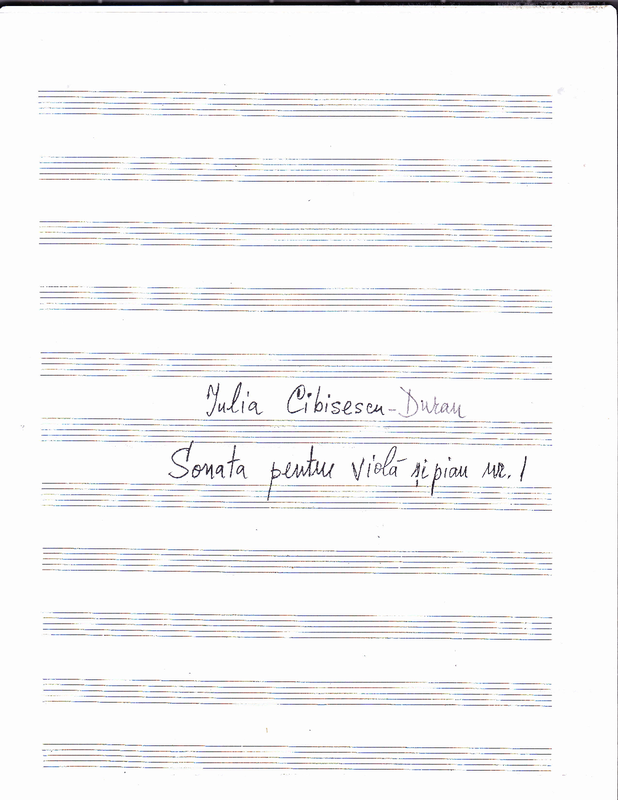 Iulia Cibisescu-Duran
Sonata pentru violă și pian nr. 1